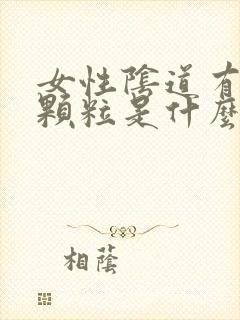 女性陰道有
顆粒是什麼
相蔭